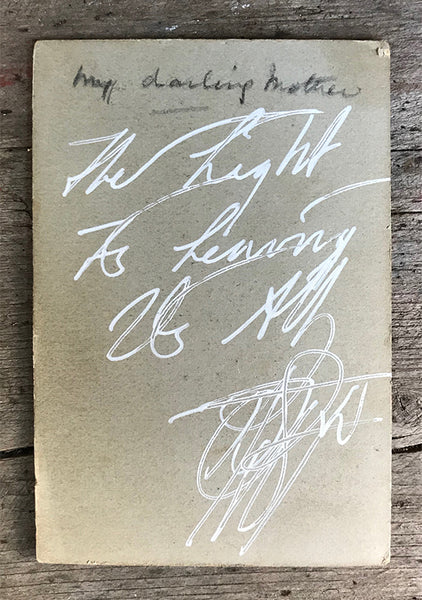 my darling mother
The Light
Is Leaving
Us All